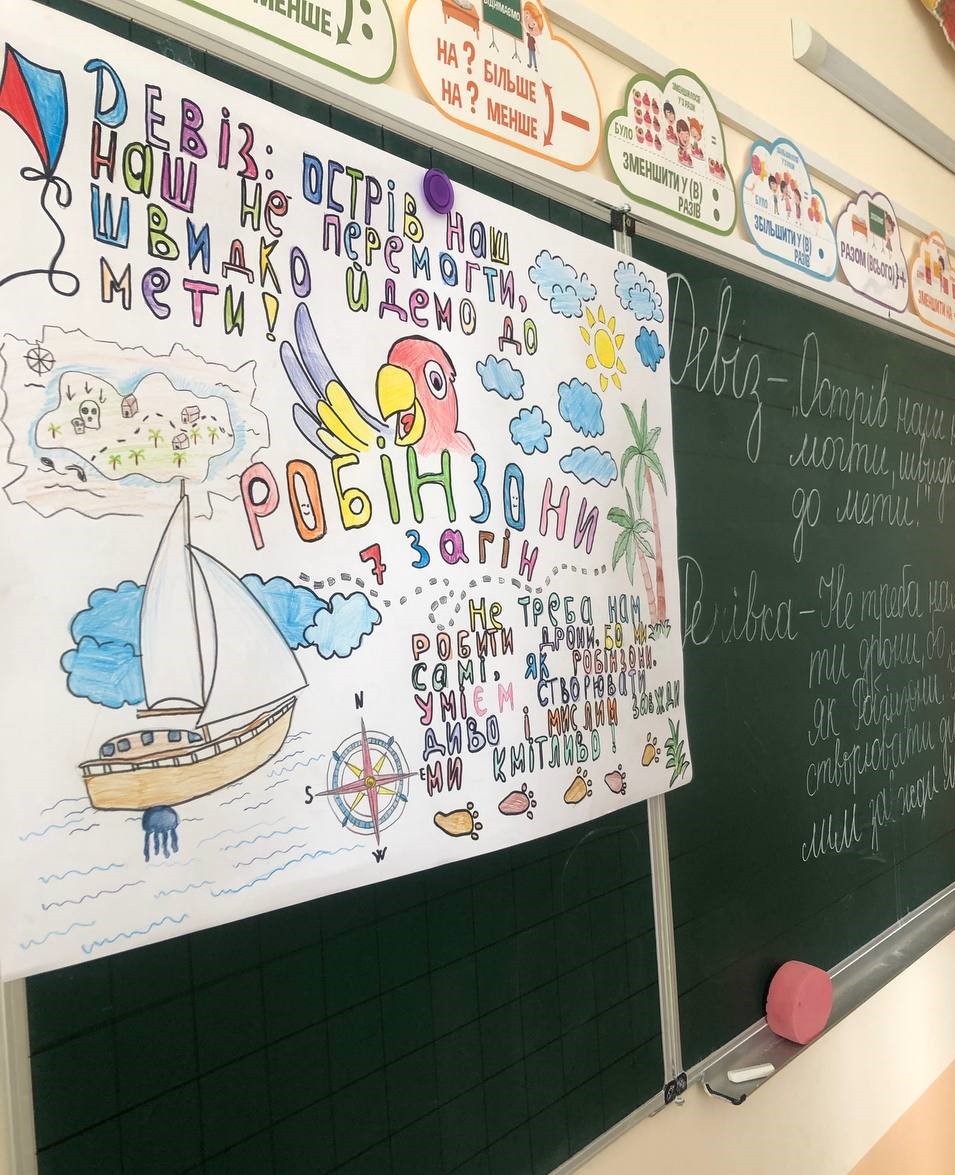 МЕНШЕ
ВІДНІМАЄМО
НА ? БІЛЬШЕ
НА ? МЕНШЕ –
ЗМЕНШИЛОСЯ
У 3 РАЗИ
БУЛО
ЗМЕНШИТИ У (В)
РАЗІВ :
БУЛО
ЗБІЛЬШИТИ У (В)
РАЗІВ
РАЗОМ (ВСЬОГО) +
ЗМЕНШИТИ НА
ДЕВІЗ: ОСТРІВ НАШ
НАШ НЕ ПЕРЕМОГТИ,
ШВИДКО ЙДЕМО ДО
МЕТИ!
РОБІНЗОНИ
7 ЗАГІН
НЕ ТРЕБА НАМ
РОБИТИ ДРОНИ, БО МИ
САМІ, ЯК РОБІНЗОНИ.
УМІЄМ СТВОРЮВАТИ
ДИВО І МИСЛИМ ЗАВЖДИ
МИ КМІТЛИВО!
N
S E
W
Девіз – „Острів наш
могти, швидк
до мети!
Речівка – Не треба нам
ти дрони, бо
як Робінзони
створювати ди
лим завжди